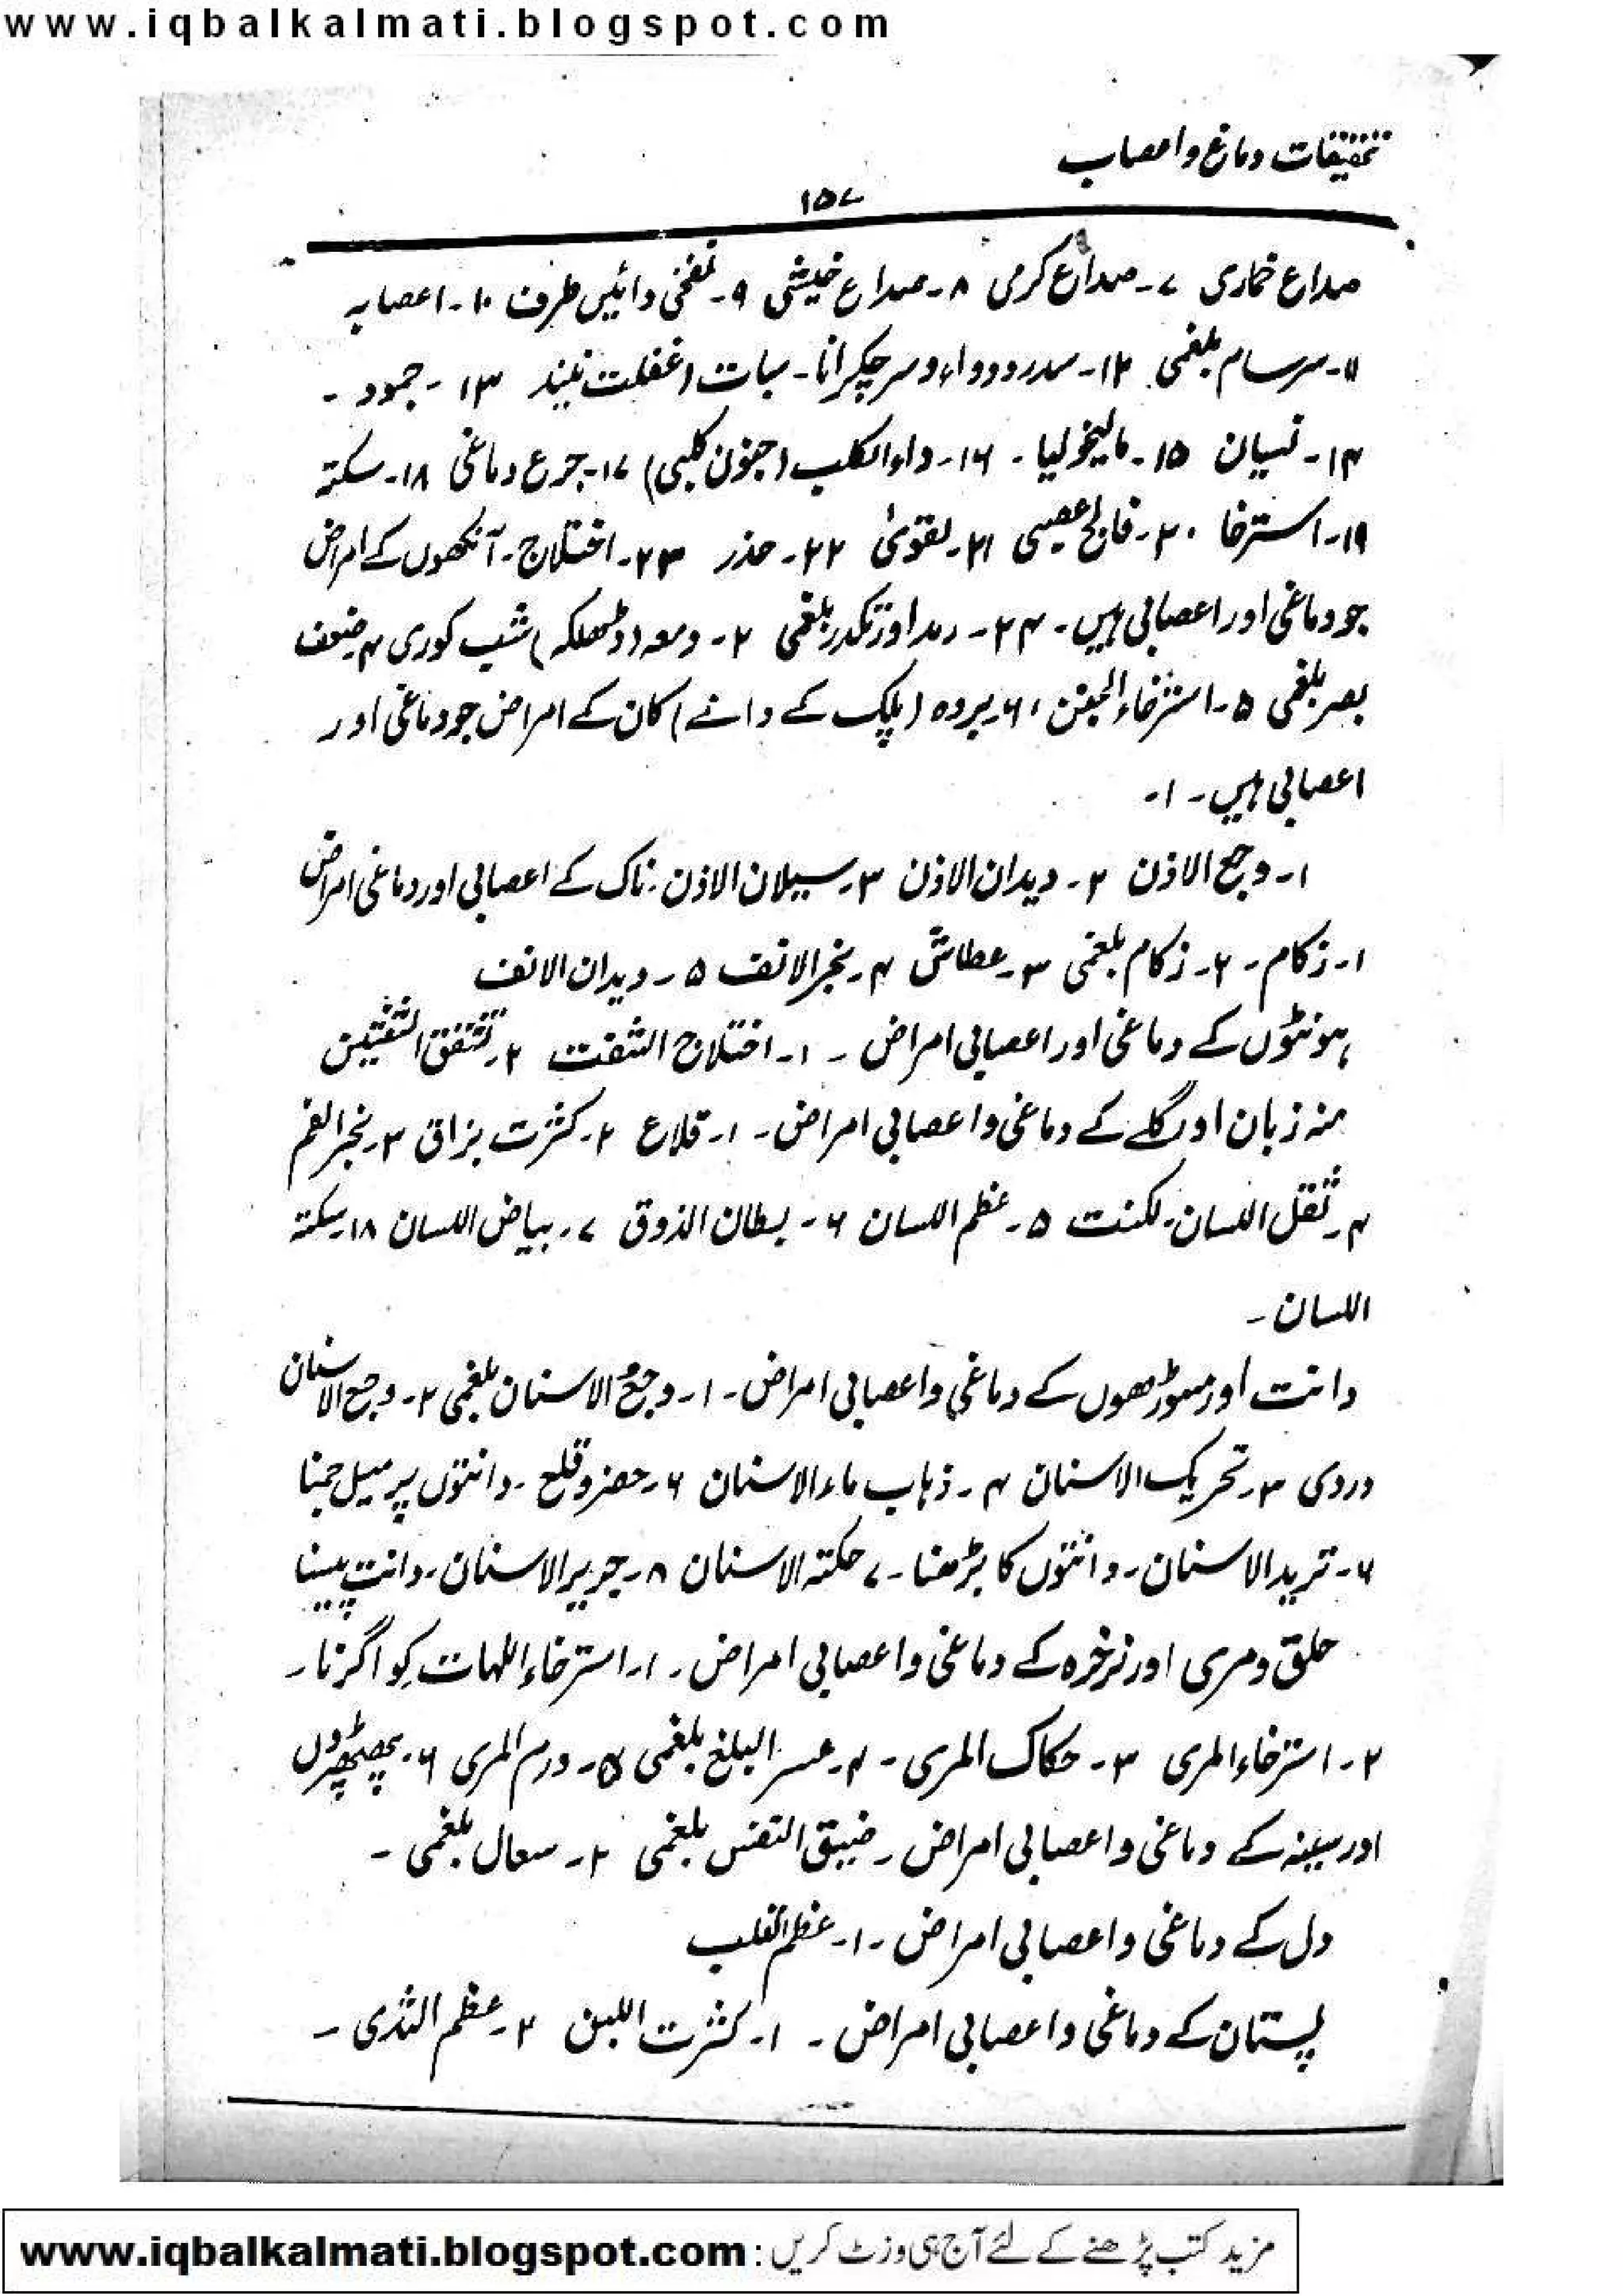 www.iqbalkalmati.blogspot.com
تحقیقات دماغ و اعصاب
۱۵۷
صداع خماری ۷۔ صداع کرمی ۸۔ صداع خیشی ۹۔ دائیں طرف ۱۰۔ اعصابہ
۱۱۔ سرسام بلغمی ۱۲۔ سدر و دوواء و سر چکرانا۔ سبات (غفلت نیند ۱۳۔ جمود۔
۱۴۔ نسیان ۱۵۔ مالیخولیا۔ ۱۶۔ داء الکلب (جنون کلبی) ۱۷۔ جرع دماغی ۱۸۔ سکتہ
۱۹۔ استرخا ۲۰۔ فالج عصبی ۲۱۔ لقویٰ ۲۲۔ حذر ۲۳۔ اختلاج۔ آنکھوں کے امراض
جو دماغی اور اعصابی ہیں۔ ۲۴۔ رمد اور تکدر بلغمی ۲۔ دمعہ (ڈھلکہ) شب کوری ۴ ضعف
بصر بلغمی ۵۔ استرخاء الجفن، ۶۔ بردہ (پلک کے دانے) کان کے امراض جو دماغی اور
اعصابی ہیں۔ ۱۔
۱۔ وجع الاذن ۲۔ دیدان الاذن ۳۔ سیلان الاذن۔ ناک کے اعصابی اور دماغی امراض
۱۔ زکام۔ ۲۔ زکام بلغمی ۳۔ عطاش ۴۔ بخر الانف ۵۔ دیدان الانف
ہونٹوں کے دماغی اور اعصابی امراض ۔ ۱۔ اختلاج الشفت ۲۔ تشقق الشفتین
منہ زبان اور گلے کے دماغی و اعصابی امراض۔ ۱۔ قلاع ۲۔ کثرت بزاق ۳۔ بخر الفم
۴۔ ثقل اللسان۔ لکنت ۵۔ عظم اللسان ۶۔ بطان الذوق ۷۔ بیاض اللسان ۱۸۔ سکتہ
اللسان۔
دانت اور مسوڑھوں کے دماغی و اعصابی امراض۔ ۱۔ وجع الاسنان بلغمی ۲۔ وجع الاسنان
دردی ۳۔ تحریک الاسنان ۴۔ ذہاب ماء الاسنان ۶۔ حفر و قلح۔ دانتوں پر میل جمنا
۶۔ تریدالاسنان۔ دانتوں کا بڑھنا۔ ۷ حکتہ الاسنان ۸۔ جریر الاسنان۔ دانت پیسنا
حلق و مری اور نرخرہ کے دماغی و اعصابی امراض۔ ۱۔ استرخاء اللہات کوا گرنا۔
۲۔ استرخاء المری ۳۔ حکاک المری ۔ ۴۔ عسر البلغ بلغمی ۵۔ ورم المری ۶۔ پھیپھڑوں
اور سینہ کے دماغی و اعصابی امراض ۔ ضیق النفس بلغمی ۲۔ سعال بلغمی ۔
دل کے دماغی و اعصابی امراض ۔ ۱۔ عظم القلب
پستان کے دماغی و اعصابی امراض ۔ ۱۔ کثرت اللبن ۲۔ عظم الثدی ۔
مزید کتب پڑھنے کے لئے آج ہی وزٹ کریں : www.iqbalkalmati.blogspot.com